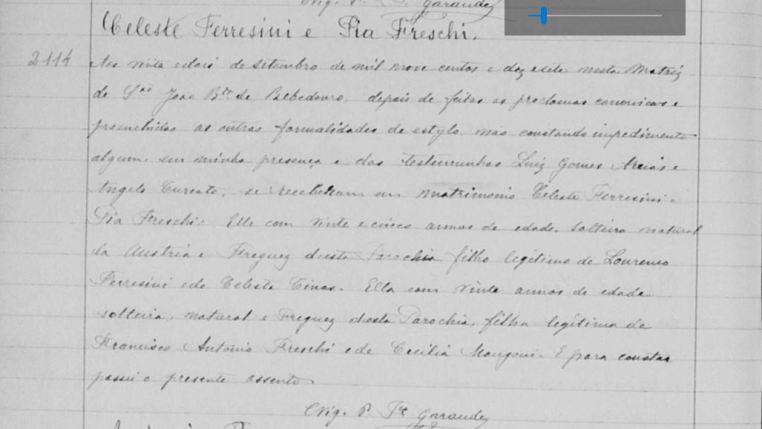 Vig. P. Garaude
Celeste Ferresini e Pia Freschi.
2114
Aos vinte e dois de setembro de mil nove centos e dezesete nesta Matriz
de São João Bta de Bebedouro, depois de feitos os proclamas canonicos e
preenchidas as outras formalidades de estylo, não constando impedimento
algum, em minha presença e das testemunhas Luiz Gomes e
Angelo Tureato, se receberam em matrimonio Celeste Ferresini e
Pia Freschi. Elle com vinte e cinco annos de edade, solteiro natural
da Austria e Freguez desta Parochia filho legitimo de Lourenço
Ferresini e de Celeste Tinas. Ella com vinte annos de edade
solteira, natural e Freguez desta Parochia, filha legitima de
Francisco Antonio Freschi e de Cecilia Mongoni. E para constar
passei o presente assento.
Vig. P. Garaude